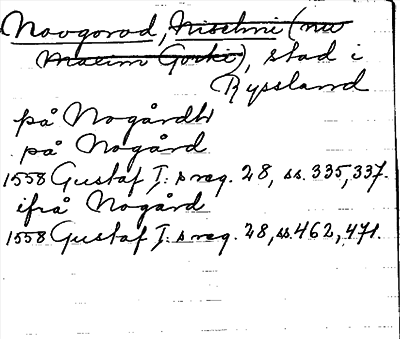 Novgorod, Nischni (nu
Maxim Gorki), stad i
Ryssland
på Nogårdh
på Nogård
1558 Gustaf I: s reg. 28, ss. 335, 337.
ifrå Nogård
1558 Gustaf I: s reg. 28, ss. 462, 471.